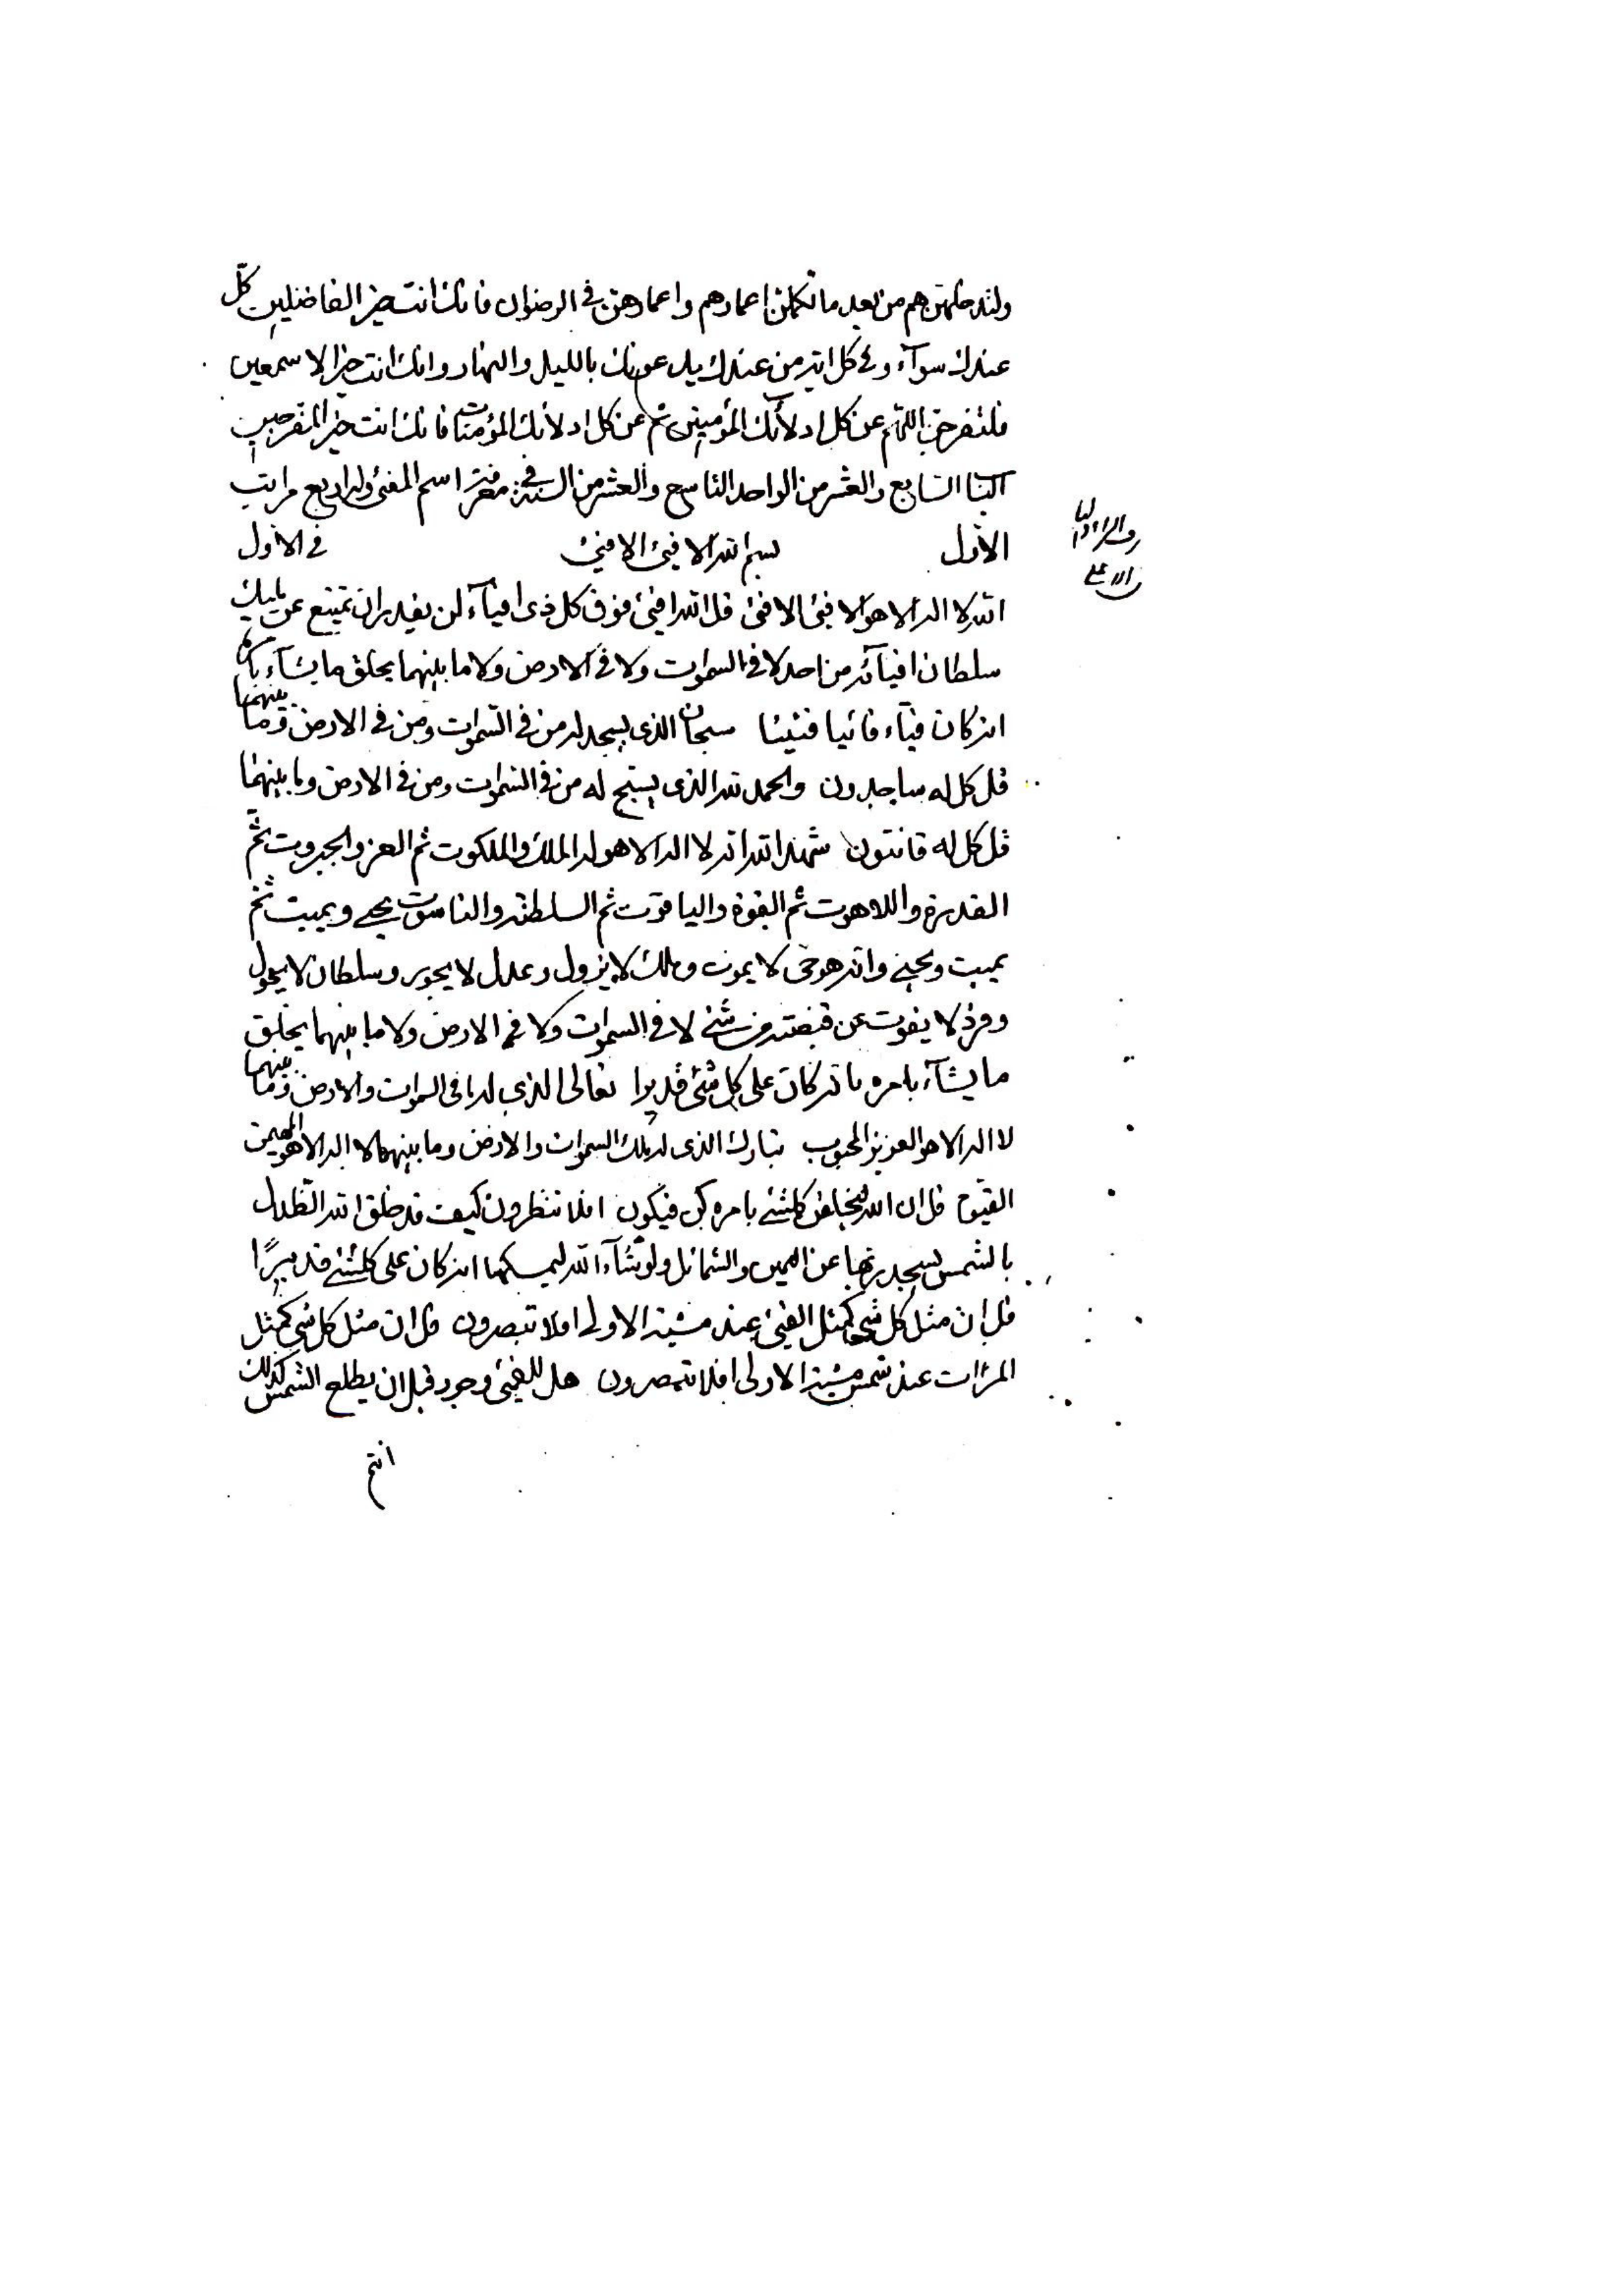 ولتدخلنهن هم من بعد ما تكملن اعمارهم واعمارهن في الرضوان فانك انت خير الفاضلين كل
عندك سوآء وكل اتر من عندك يدعونك بالليل والنهار وانك انت خير الاسمعين
فلتفرحن اللهم عن كل ادلائك المؤمنين ثم عن كل ادلائك المؤمنات فانك انت خير المفرحين
الباب السابع والعشر من الواحد التاسع والعشر من السنة في معرفة اسم المفئ وله اربع مراتب
الاول بسم الله الافيئ الافيئ في الاول
الله لا اله الا هو الافيئ الافيئ قل الله افيئ فوق كل ذي افيآء لن يقدر ان يمتنع عن مليك
سلطان افيآئه من احد لا في السموات ولا في الارض ولا ما بينهما يخلق ما يشآء بامره
انه كان فيآء فائيا فيئيا سبحان الذي يسجد له من في السموات ومن في الارض وما بينهما
قل كل له ساجدون والحمد لله الذي يسبح له من في السموات ومن في الارض وما بينهما
قل كل له قانتون شهد الله انه لا اله الا هو له الملك والملكوت ثم العز والجبروت ثم
القدرة واللاهوت ثم القوة والياقوت ثم السلطنة والناسوت يحيي ويميت ثم
يميت ويحيي وانه هو حي لا يموت وملك لا يزول وعدل لا يجور وسلطان لا يحول
وفرد لا يفوت عن قبضته من شئ لا في السموات ولا في الارض ولا ما بينهما يخلق
ما يشآء بامره انه كان على كل شئ قديرا تعالى الذي له ما في السموات والارض وما بينهما
لا اله الا هو العزيز المحبوب تبارك الذي له ملك السموات والارض وما بينهما لا اله الا هو المهيمن
القيوم قل ان الله ليخلقن كلشئ بامره كن فيكون افلا تنظرون كيف قد خلق الله الظلال
بالشمس يسجد ربها عن اليمين والشمائل ولو شآء الله ليمسكها انه كان على كلشئ قديرًا
قل ان مثل كل شئ كمثل الفيئ عند مشية الاولى افلا تبصرون قل ان مثل كل شئ كمثل
المرات عند شمس مشية الاولى افلا تبصرون هل للفيئ وجود قبل ان يطلع الشمس كذلك
انتم